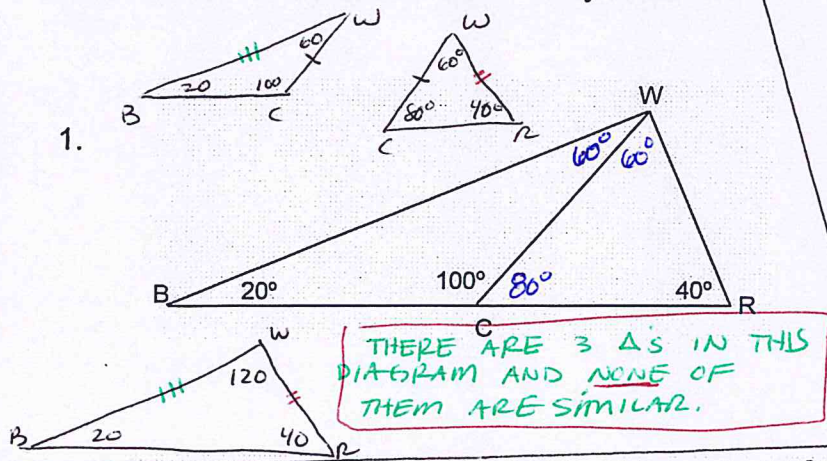 W
60
20 100
B C
W
60°
80° 40°
C R
1.
W
60° 60°
B 20° 100° 80° 40° R
C
W
120
B 20 40 R
THERE ARE 3 Δ'S IN THIS
DIAGRAM AND NONE OF
THEM ARE SIMILAR.